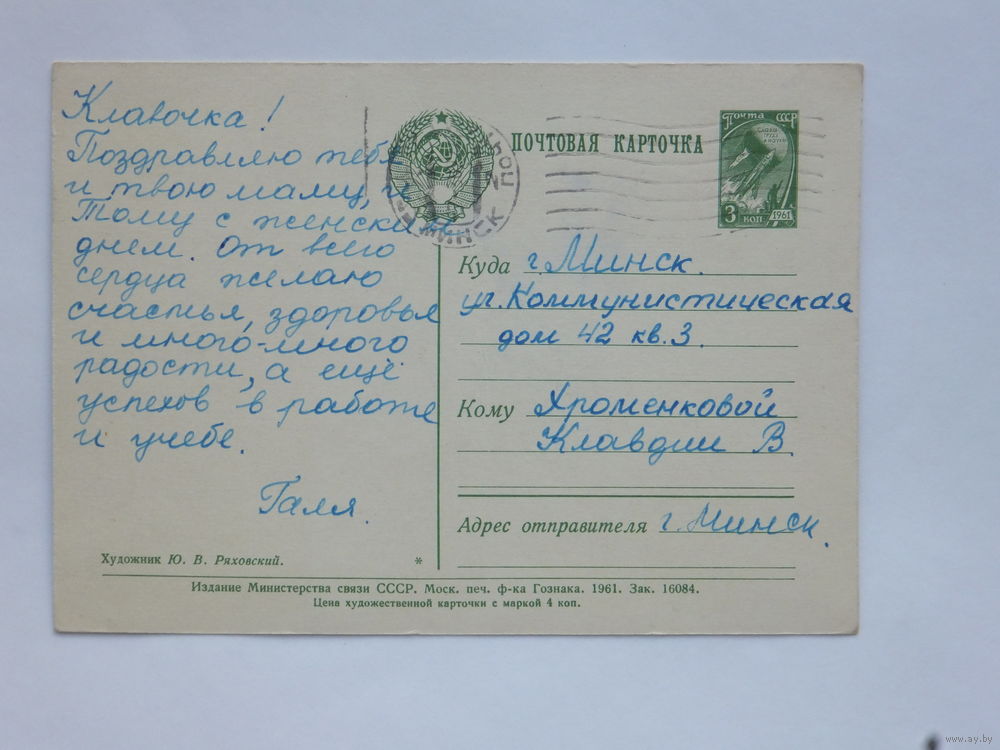 Клавочка!
Поздравляю тебя
и твою маму, и
Тому с женским
днем. От всего
сердца желаю
счастья, здоровья
и много-много
радости, а ещё
успехов в работе
и учебе.
Галя.
Художник Ю. В. Ряховский.
*
ПОЧТОВАЯ КАРТОЧКА
МИНСК
Почта СССР
3 коп
1961
Куда г. Минск.
ул. Коммунистическая
дом 42 кв. 3.
Кому Хроменковой
Клавдии В.
Адрес отправителя г. Минск.
Издание Министерства связи СССР. Моск. печ. ф-ка Гознака. 1961. Зак. 16084.
Цена художественной карточки с маркой 4 коп.
www.ay.by